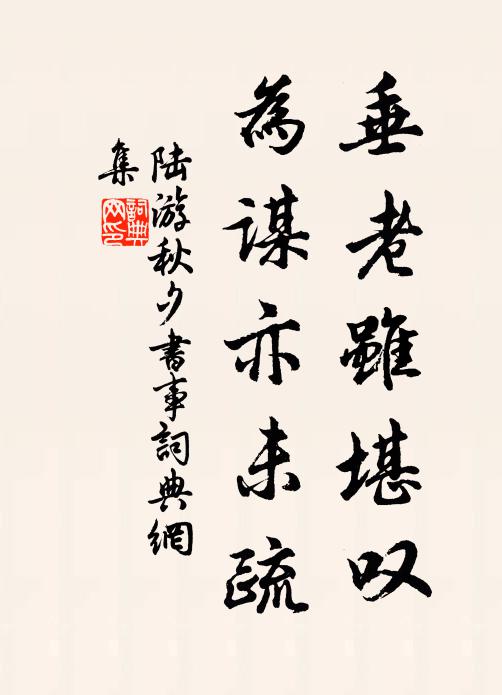 垂老雖堪叹
為謀亦未疏
陆游秋夕書事詞典網
集
詞典网印